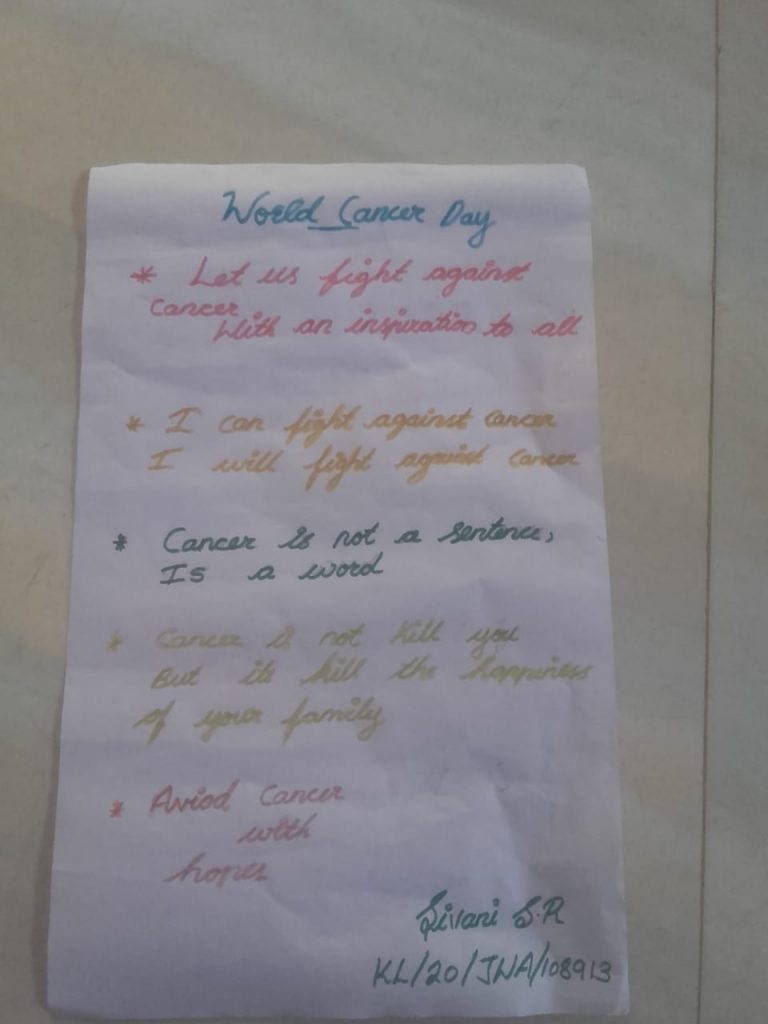 World Cancer Day
* Let us fight against
Cancer
With an inspiration to all
* I can fight against cancer
I will fight against cancer
* Cancer is not a sentence,
Is a word
* Cancer is not kill you
But its kill the happiness
of your family
* Aviod Cancer
with
hopes
Sivani S.R
KL/20/JNA/108913